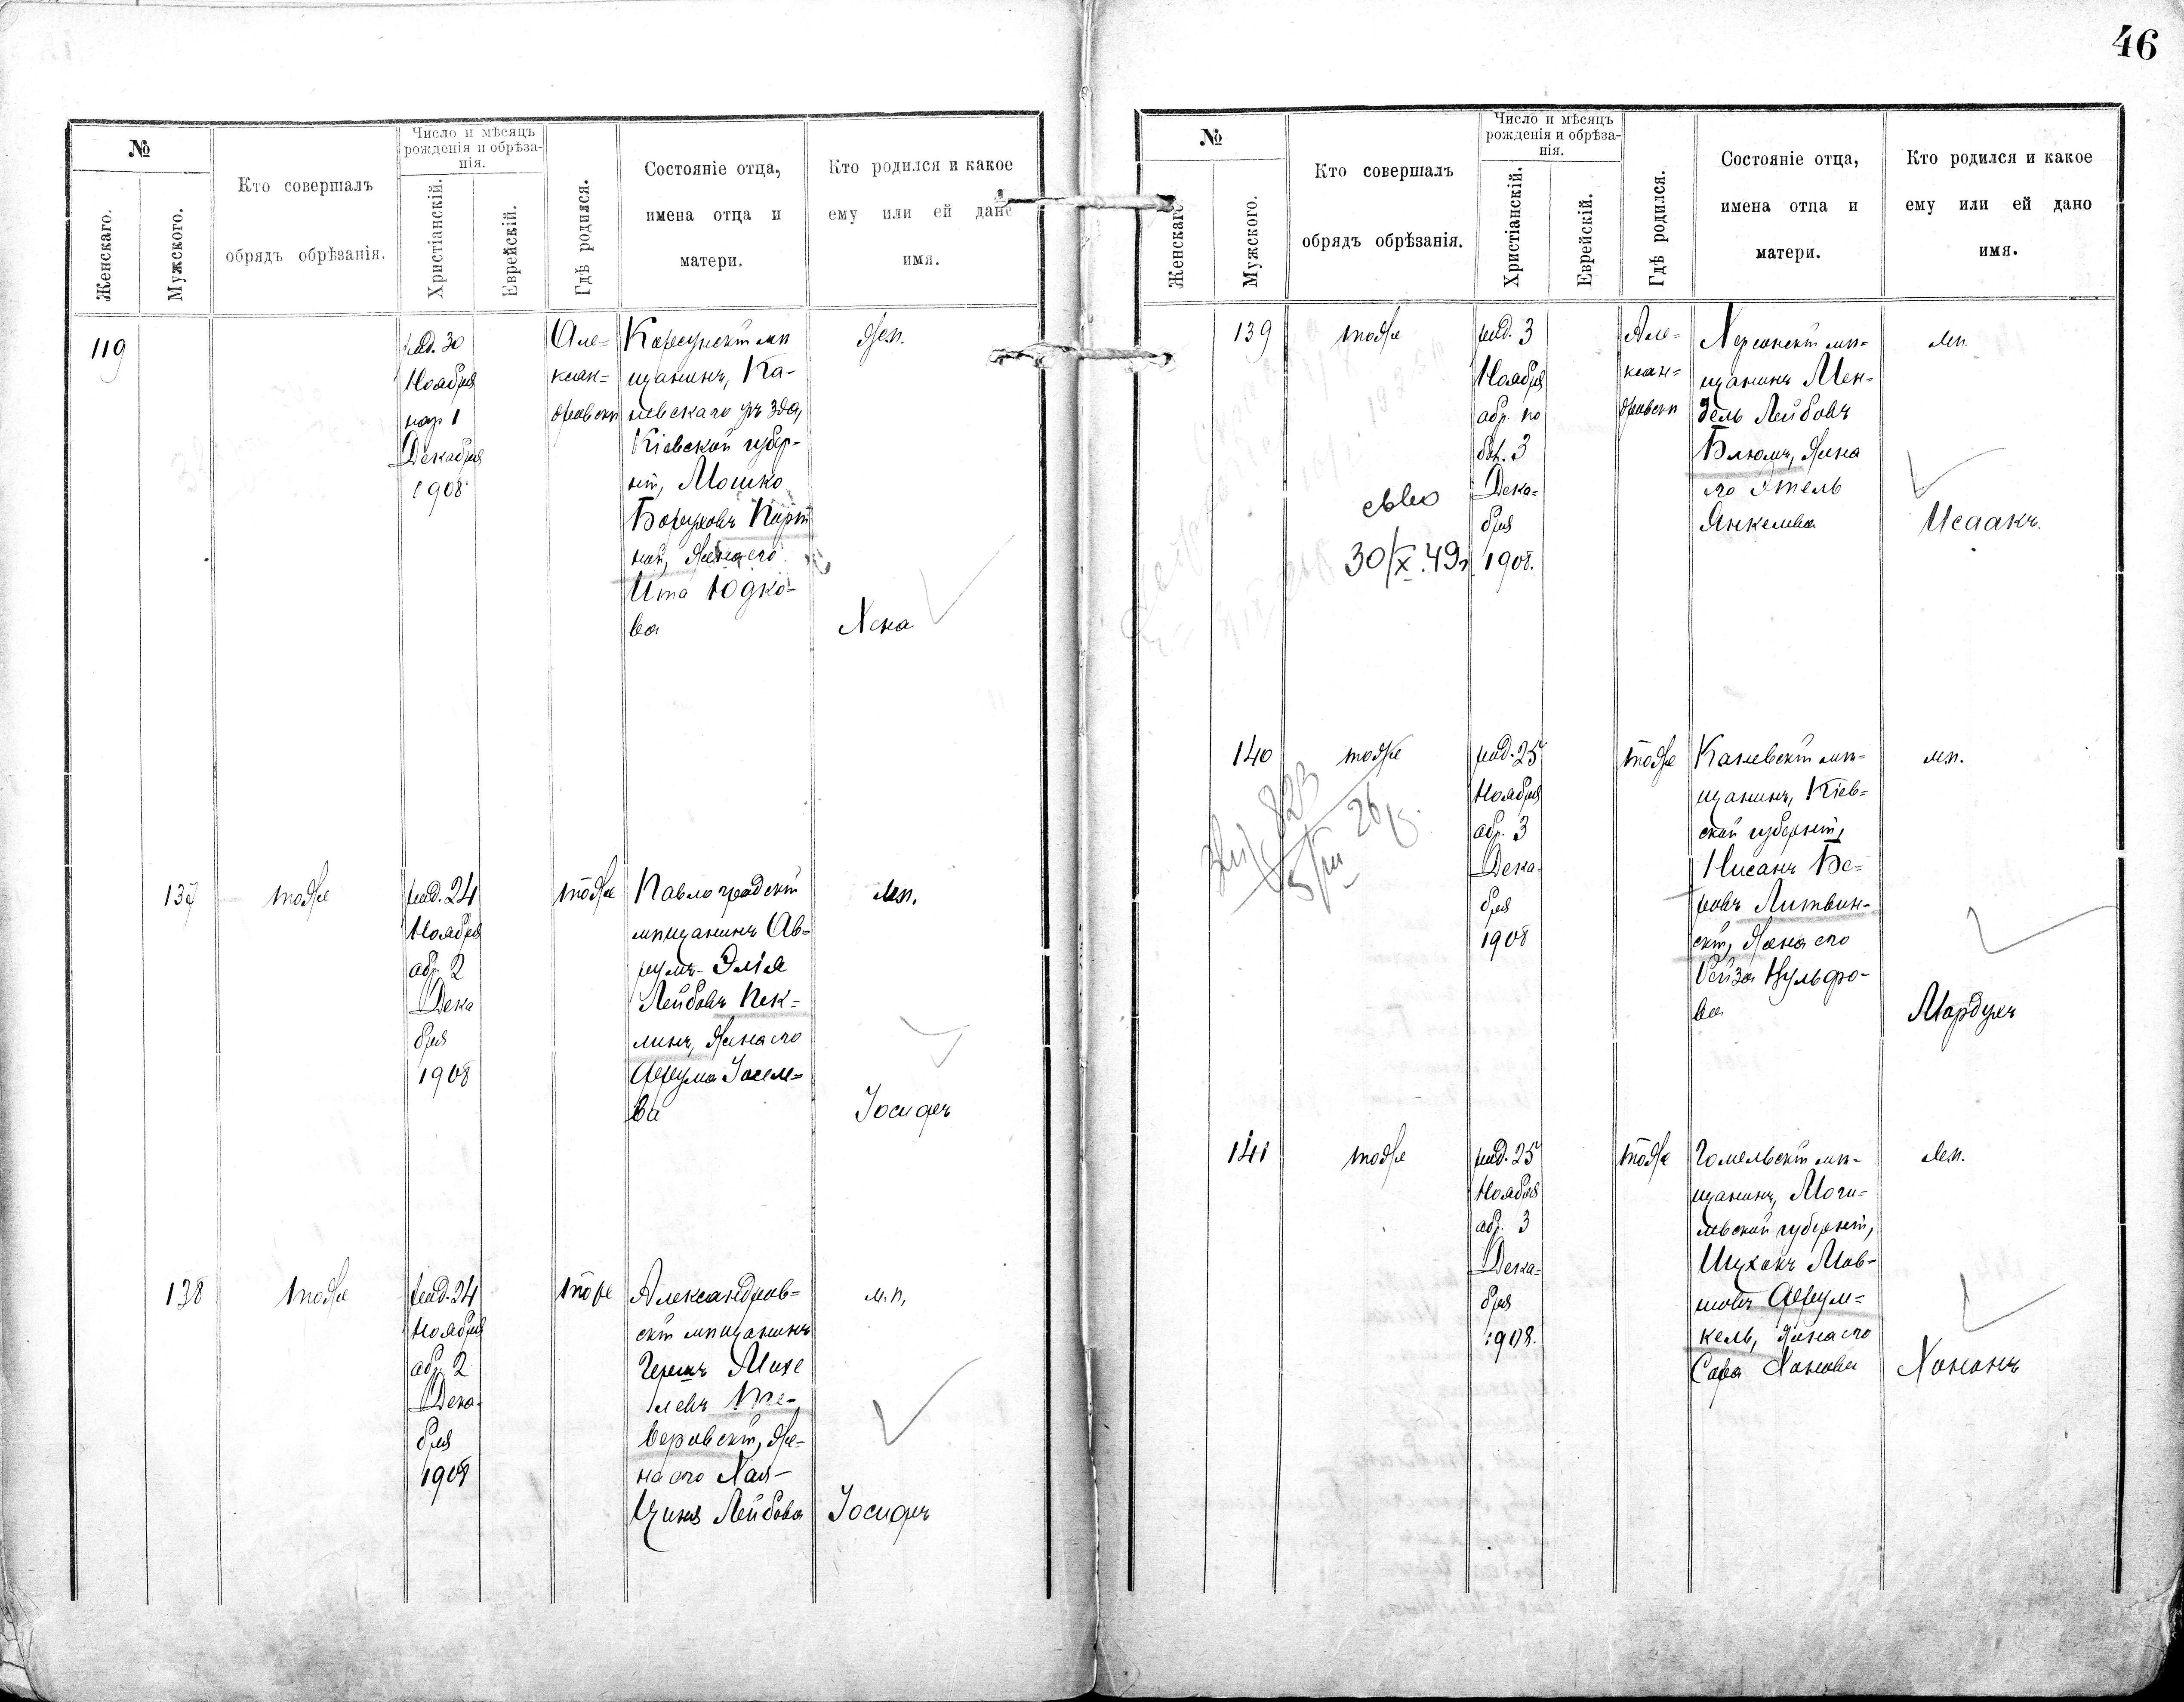 46
№
Женскаго.
Мужского.
Кто совершалъ
обрядъ обрѣзанія.
Число и мѣсяцъ
рожденія и обрѣза-
нія.
Христіанскій.
Еврейскій.
Гдѣ родился.
Состояніе отца,
имена отца и
матери.
Кто родился и какое
ему или ей дано
имя.
119
род. 30
Ноября
нар. 1
Декабря
1908
Але=
ксан=
дровскѣ
Корсунскій мѣ
щанинъ, Ка-
невскаго уѣзда,
Кіевской губер-
ніи, Мошко
Боруховъ
жена его
Ита Юдко-
ва
жен.
Хена
137
тоже
род. 24
Ноября
обр. 2
Дека
бря
1908
тоже
Павлоградскій
мѣщанинъ Ав-
румъ-Элія
Лейбовъ Пек-
линъ, жена его
Фрума Іосел=
ва
м.п.
Іосифъ
138
тоже
род. 24
Ноября
обр. 2
Дека-
бря
1908
тоже
Александров-
скій мѣщанинъ
Герсшъ Михе
левъ Тве-
веровскій, же-
на его Хая-
Циня Лейбова
м.п.
Іосифъ
№
Женскаго
Мужского.
Кто совершалъ
обрядъ обрѣзанія.
Число и мѣсяцъ
рожденія и обрѣза-
нія.
Христіанскій.
Еврейскій.
Гдѣ родился.
Состояніе отца,
имена отца и
матери.
Кто родился и какое
ему или ей дано
имя.
139
тоже
30/X.49г.
род. 3
Ноября
обр. по
бол. 3
Дека-
бря
1908.
Але-
ксан=
дровскѣ
Херсонскій мѣ-
щанинъ Мен-
дель Лейбовъ
Блюмъ, жена
его Этель
Янкелева
м.п.
Исаакъ.
140
тоже
823
5/III 26 г.
род. 25
Ноября
обр. 3
Дека-
бря
1908
тоже
Каневскій мѣ-
щанинъ, Кіев-
ской губерніи,
Нисанъ Бе-
ровъ Литвин-
скій, жена его
Рейза Вульфо-
ва
м.п.
Мордухъ
141
тоже
род. 25
Ноября
обр. 3
Дека-
бря
1908.
тоже
Гомельскій мѣ-
щанинъ, Моги-
левской губерніи,
Ицхокъ Мов-
шовъ Фрум-
кель, жена его
Сора Хонова
м.п.
Хононъ